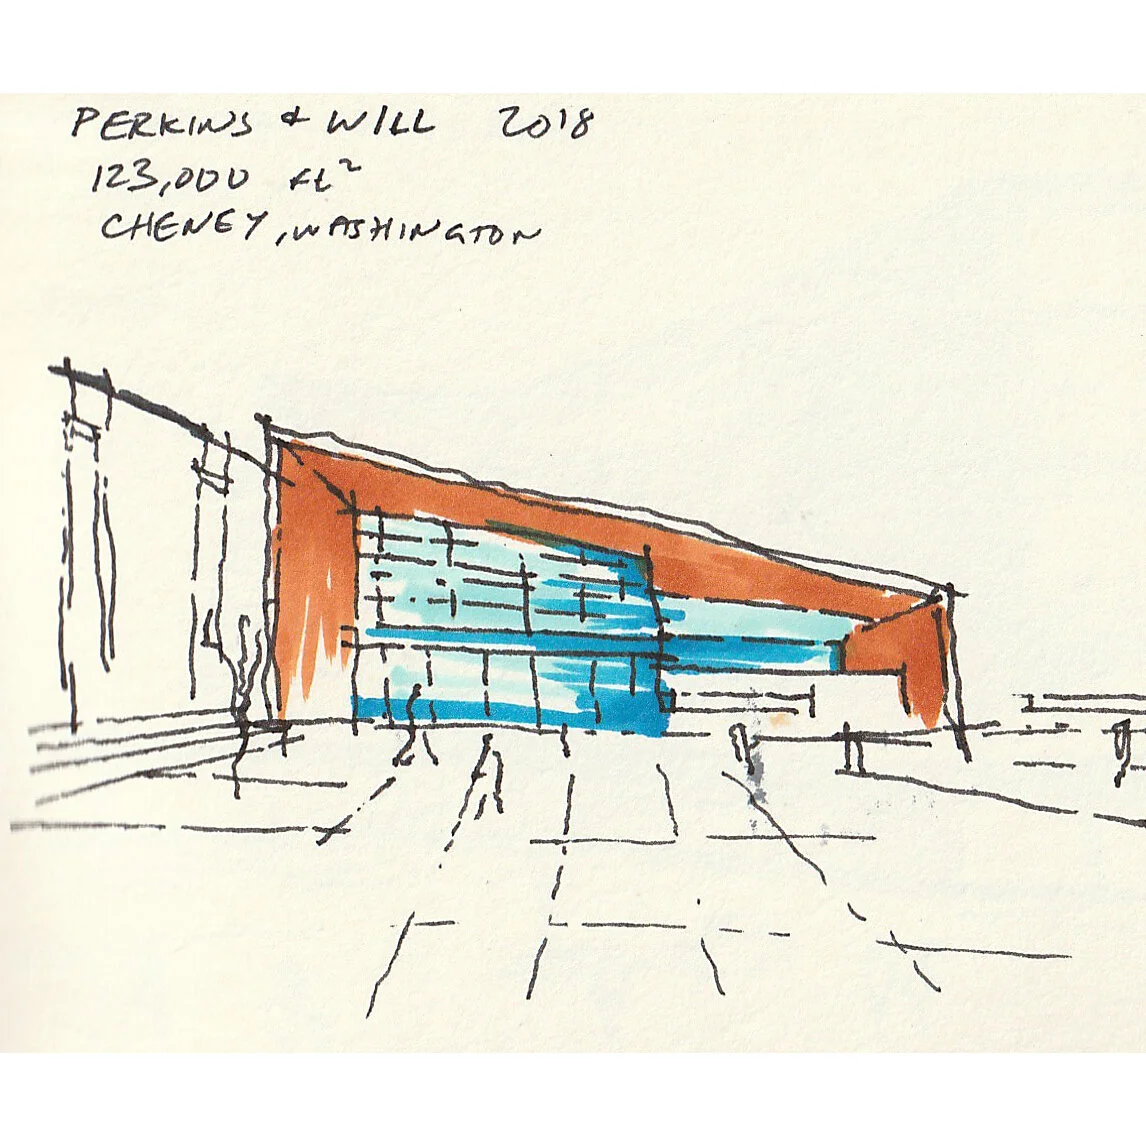 PERKINS & WILL 2018
123,000 ft²
CHENEY, WASHINGTON